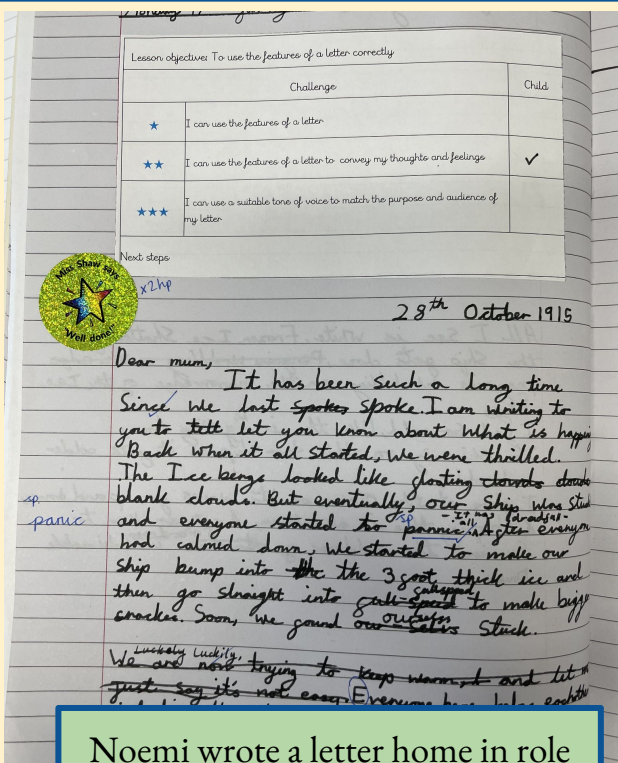 Lesson objective: To use the features of a letter correctly
Challenge
Child
★ I can use the features of a letter
★★ I can use the features of a letter to convey my thoughts and feelings ✓
★★★ I can use a suitable tone of voice to match the purpose and audience of
my letter
Next steps
Miss Shaw says
"Well done!"
x2hp
28th October 1915
Dear mum,
It has been such a long time
Since we last spokes spoke. I am writing to
you to tell let you know about what is happ
Back when it all started, we were thrilled.
The Ice bergs looked like floating clouds
blank clouds. But eventually, our ship was stu
sp.
panic
and everyone started to pannic. sp - It was all dreadful - After everyon
had calmed down, we started to make our
ship bump into the the 3 foot thick ice and
then go straight into full-speed fullspeed to make bigg
cracks. Soon, we found our selfs ourselfs stuck.
Luckely Luckily,
We are now trying to keep warm, and let m
just say it's not easy. Everyone here helps eachothe
Noemi wrote a letter home in role